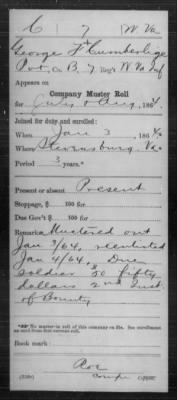 C 7 W. Va
George F Cumberlige
Pvt, Co. B, 7 Reg't W. Va Inf
Appears on
Company Muster Roll
for July & Aug, 1864.
Joined for duty and enrolled:
When Jan 3, 1864
Where Stevensburg Va
Period 3 years.*
Present or absent Present
Stoppage, $ 100 for
Due Gov't $ 100 for
Remarks: Mustered out
Jan 3/64, reenlisted
Jan 4/64, Due
soldier $50 fifty
dollars 2nd Inst.
of Bounty
*See enrollment
Book mark:
(358c) Copyist.